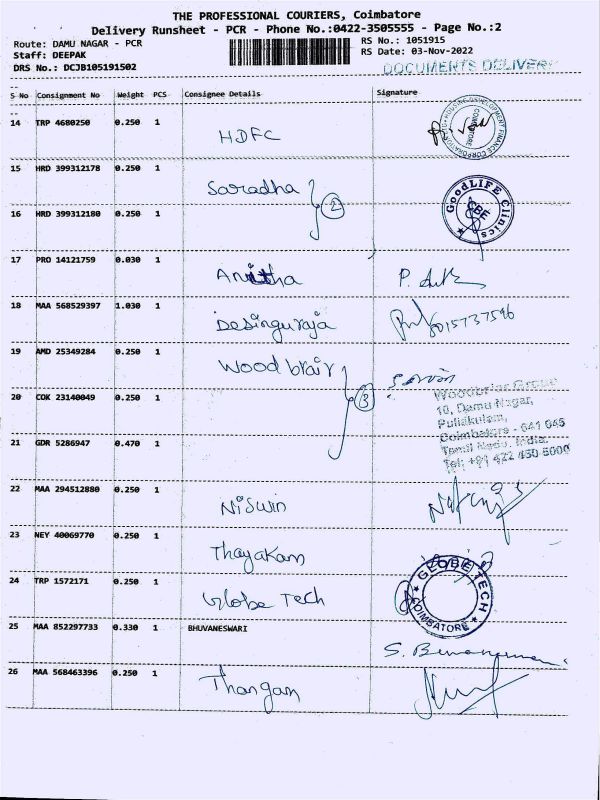 THE PROFESSIONAL COURIERS, Coimbatore
Delivery Runsheet - PCR - Phone No.:0422-3505555 - Page No.:2
Route: DAMU NAGAR - PCR
RS No.: 1051915
Staff: DEEPAK
RS Date: 03-Nov-2022
DRS No.: DCJB105191502
DOCUMENTS DELIVERY
--
S No Consignment No Weight PCS Consignee Details Signature
--
14 TRP 4680250 0.250 1 HDFC
HOUSING DEVELOPMENT FINANCE CORPORATION
COIMBATORE
15 HRD 399312178 0.250 1 Saradha
2
16 HRD 399312180 0.250 1
GoodLIFE Clinics
CBE
17 PRO 14121759 0.030 1 Anitha P.
18 MAA 568529397 1.030 1 Desinguraja
8015737596
19 AMD 25349284 0.250 1 Wood brair
20 COK 23140049 0.250 1
3
Woodbriar Group
10, Damu Nagar,
Puliakulam,
Coimbatore - 641 045
Tamil Nadu, India.
21 GDR 5286947 0.470 1
Tel: +91 422 450 5000
22 MAA 294512880 0.250 1 Niswin
23 NEY 40069770 0.250 1 Thayakam
24 TRP 1572171 0.250 1 Globe Tech
GLOBE TECH
COIMBATORE
25 MAA 852297733 0.330 1 BHUVANESWARI
S.
26 MAA 568463396 0.250 1 Thangam